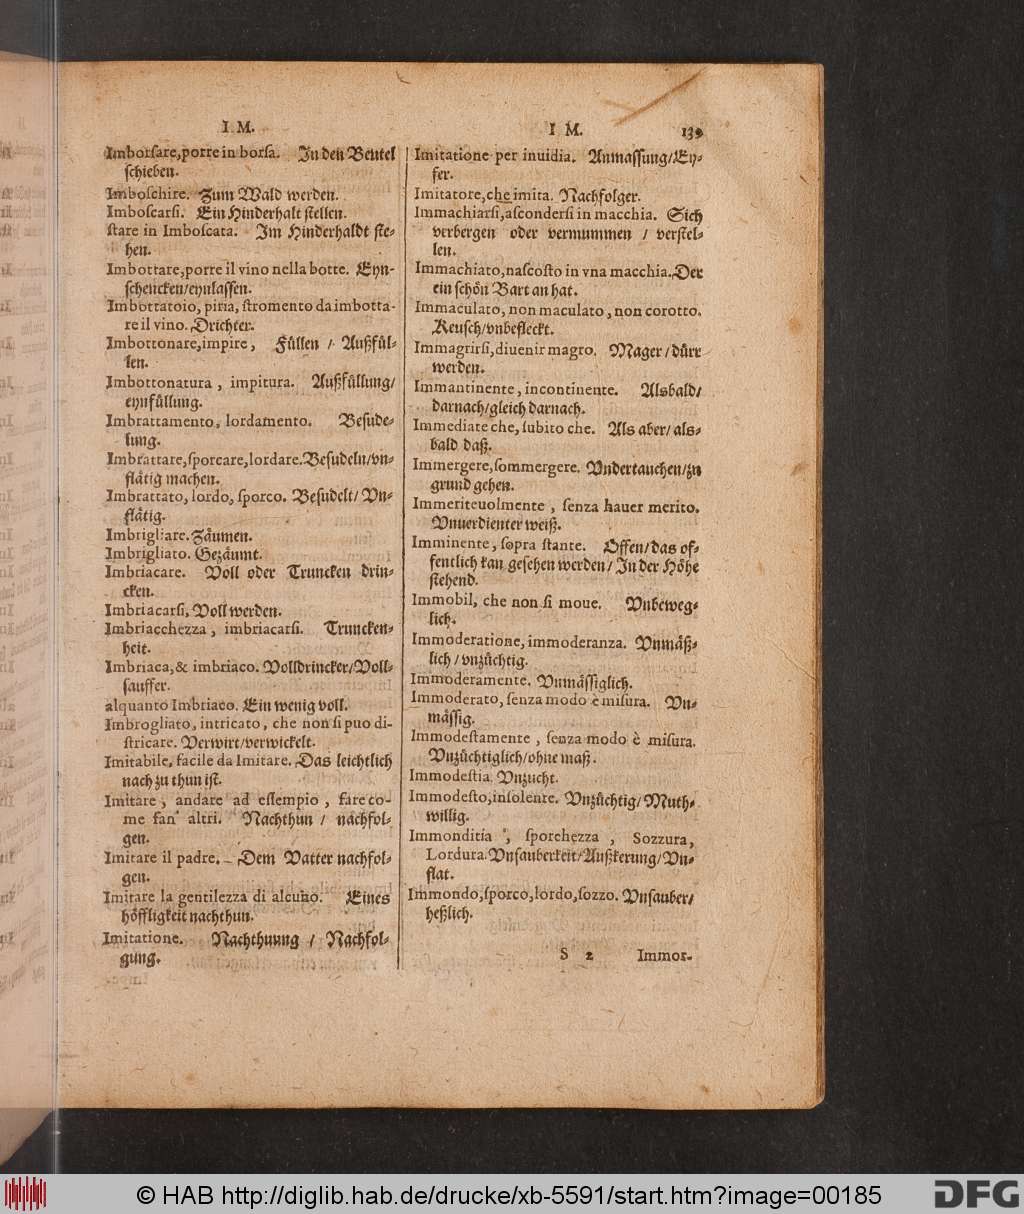 I M.
Imborsare,porre in borsa. In den Beutel
schieben.
Imboschire. Zum Wald werden.
Imboscarsi. Ein Hinderhalt stellen.
stare in Imboscata. Im Hinderhaldt ste-
hen.
Imbottare,porre il vino nella botte. Eyn-
schencken/eynlassen.
Imbottatoio, piria, stromento da imbotta-
re il vino. Drichter.
Imbottonare,impire, Füllen / Außfül-
len.
Imbottonatura, impitura. Außfüllung/
eynfüllung.
Imbrattamento, lordamento. Besude-
lung.
Imbrattare,sporcare,lordare.Besudeln/vn-
flätig machen.
Imbrattato, lordo, sporco. Besudelt/ Vn-
flätig.
Imbrigliare. Zäumen.
Imbrigliato. Gezäumt.
Imbriacare. Voll oder Truncken drin-
cken.
Imbriacarsi. Voll werden.
Imbriacchezza, imbriacarsi. Truncken-
heit.
Imbriaca,& imbriaco. Volldrincker/Voll-
sauffer.
alquanto Imbriaco. Ein wenig voll.
Imbrogliato, intricato, che non si puo di-
stricare. Verwirt/verwickelt.
Imitabile, facile da Imitare. Das leichtlich
nach zu thun ist.
Imitare, andare ad essempio, fare co-
me fan' altri. Nachthun / nachfol-
gen.
Imitare il padre. Dem Vatter nachfol-
gen.
Imitare la gentilezza di alcuno. Eines
höffligkeit nachthun.
Imitatione. Nachthuung / Nachfol-
gung.
I M. 139
Imitatione per inuidia. Anmassung/Ey-
fer.
Imitatore,che imita. Nachfolger.
Immachiarsi,ascondersi in macchia. Sich
verbergen oder vermummen / verstel-
len.
Immachiato,nascosto in vna macchia.Der
ein schön Bart an hat.
Immaculato, non maculato, non corotto.
Keusch/vnbefleckt.
Immagrirsi,diuenir magro. Mager/dürr
werden.
Immantinente, incontinente. Alsbald/
darnach/gleich darnach.
Immediate che, subito che. Als aber/als-
bald daß.
Immergere,sommergere. Vndertauchen/zu
grund gehen.
Immeriteuolmente, senza hauer merito.
Vnuerdienter weiß.
Imminente, sopra stante. Offen/das of-
fentlich kan gesehen werden/ In der Höhe
stehend.
Immobil, che non si moue. Vnbeweg-
lich.
Immoderatione, immoderanza. Vnmäß-
lich/vnzüchtig.
Immoderamente. Vnmässiglich.
Immoderato, senza modo è misura. Vn-
mässig.
Immodestamente, senza modo è misura.
Vnzüchtiglich/ohne maß.
Immodestia. Vnzucht.
Immodesto,insolente. Vnzüchtig/Muth-
willig.
Immonditia, sporchezza, Sozzura,
Lordura.Vnsauberkeit/Außkerung/Vn-
flat.
Immondo,sporco,lordo,sozzo. Vnsauber/
heßlich.
S 2 Immor-
© HAB http://diglib.hab.de/drucke/xb-5591/start.htm?image=00185
DFG